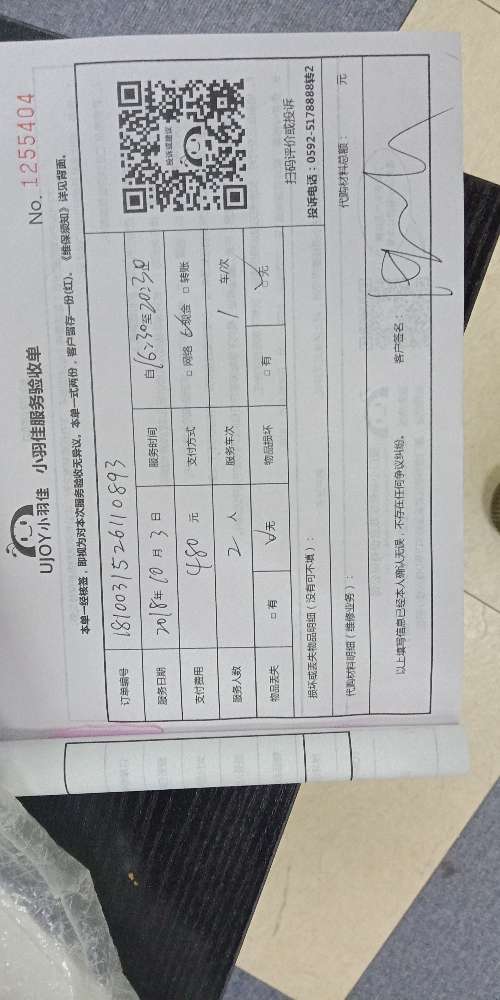 UJOY小羽佳 小羽佳服务验收单
No. 1255404
本单一经核签，即视为对本次服务验收无异议。本单一式两份，客户留存一份(红)。《维保须知》详见背面。
订单编号 181003152611 0893
服务日期 2018年10月3日 服务时间 自16:30至20:30
支付费用 480元 支付方式 □网络 □现金 □转账
服务人数 2人 服务车次 1 车/次
物品丢失 □有 □无 物品损坏 □有 □无
投诉或建议
扫码评价或投诉
投诉电话：0592-5178888转2
损坏或丢失物品明细（没有可不填）：
代购材料明细（维修业务）： 代购材料总额： 元
以上填写信息已经本人确认无误，不存在任何争议纠纷。 客户签名：